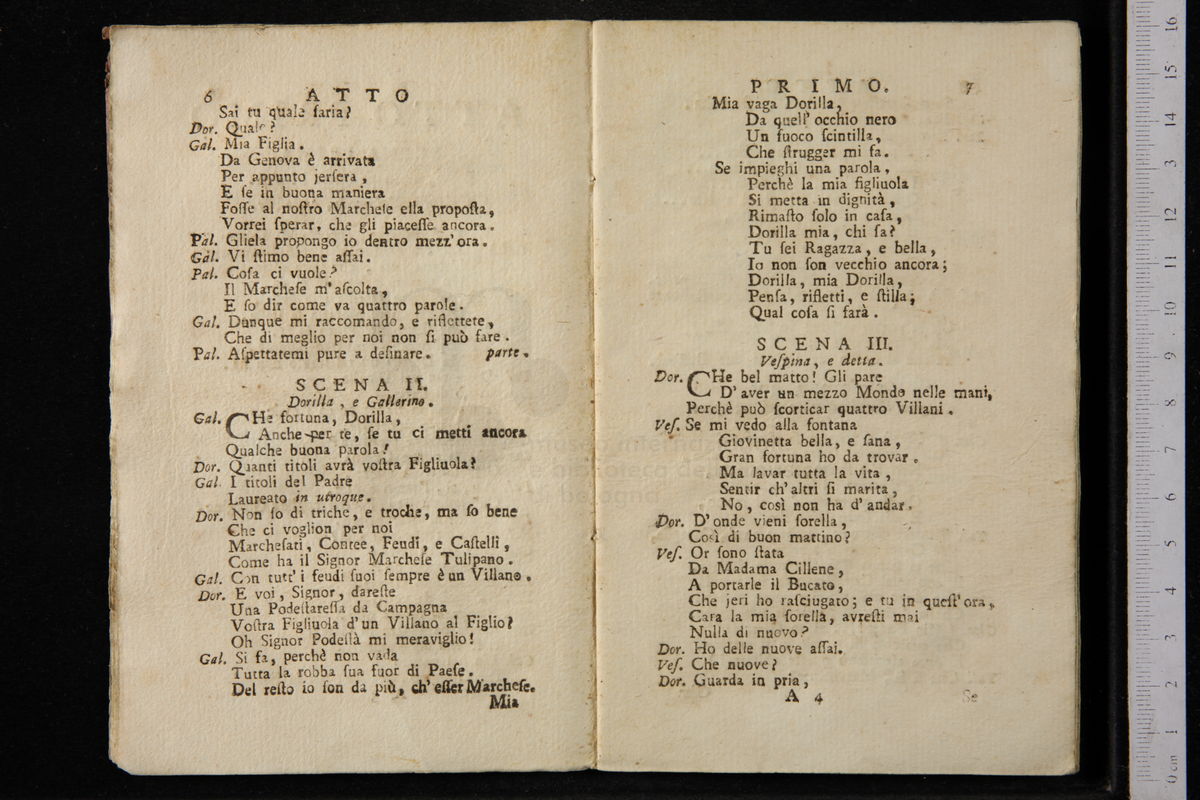 6 ATTO
Sai tu quale faria?
Dor. Quale?
Gal. Mia Figlia.
Da Genova è arrivata
Per appunto jerſera,
E ſe in buona maniera
Foſſe al noſtro Marcheſe ella propoſta,
Vorrei ſperar, che gli piaceſſe ancora.
Pal. Gliela propongo io dentro mezz'ora.
Gal. Vi ſtimo bene aſſai.
Pal. Coſa ci vuole?
Il Marcheſe m'aſcolta,
E ſo dir come va quattro parole.
Gal. Dunque mi raccomando, e riflettete,
Che di meglio per noi non ſi può fare.
Pal. Aſpettatemi pure a deſinare. parte.
SCENA II.
Dorilla, e Gallerino.
Gal. CHe fortuna, Dorilla,
Anche per te, ſe tu ci metti ancora
Qualche buona parola!
Dor. Quanti titoli avrà voſtra Figliuola?
Gal. I titoli del Padre
Laureato in utroque.
Dor. Non ſo di triche, e troche, ma ſo bene
Che ci voglion per noi
Marcheſati, Contee, Feudi, e Caſtelli,
Come ha il Signor Marcheſe Tulipano.
Gal. Con tutt'i feudi ſuoi ſempre è un Villano.
Dor. E voi, Signor, dareſte
Una Podeſtareſſa da Campagna
Voſtra Figliuola d'un Villano al Figlio?
Oh Signor Podeſtà mi meraviglio!
Gal. Si fa, perchè non vada
Tutta la robba ſua fuor di Paeſe.
Del reſto io ſon da più, ch'eſſer Marcheſe.
Mia
PRIMO. 7
Mia vaga Dorilla,
Da quell'occhio nero
Un fuoco ſcintilla,
Che ſtrugger mi fa.
Se impieghi una parola,
Perchè la mia figliuola
Si metta in dignità,
Rimaſto ſolo in caſa,
Dorilla mia, chi ſa?
Tu ſei Ragazza, e bella,
Io non ſon vecchio ancora;
Dorilla, mia Dorilla,
Penſa, rifletti, e ſtilla;
Qual coſa ſi farà.
SCENA III.
Veſpina, e detta.
Dor. CHe bel matto! Gli pare
D'aver un mezzo Mondo nelle mani,
Perchè può ſcorticar quattro Villani.
Veſ. Se mi vedo alla fontana
Giovinetta bella, e ſana,
Gran fortuna ho da trovar.
Ma lavar tutta la vita,
Sentir ch'altri ſi marita,
No, così non ha d'andar.
Dor. D'onde vieni ſorella,
Così di buon mattino?
Veſ. Or ſono ſtata
Da Madama Cillene,
A portarle il Bucato,
Che jeri ho raſciugato; e tu in queſt'ora,
Cara la mia ſorella, avreſti mai
Nulla di nuovo?
Dor. Ho delle nuove aſſai.
Veſ. Che nuove?
Dor. Guarda in pria,
A 4 Se